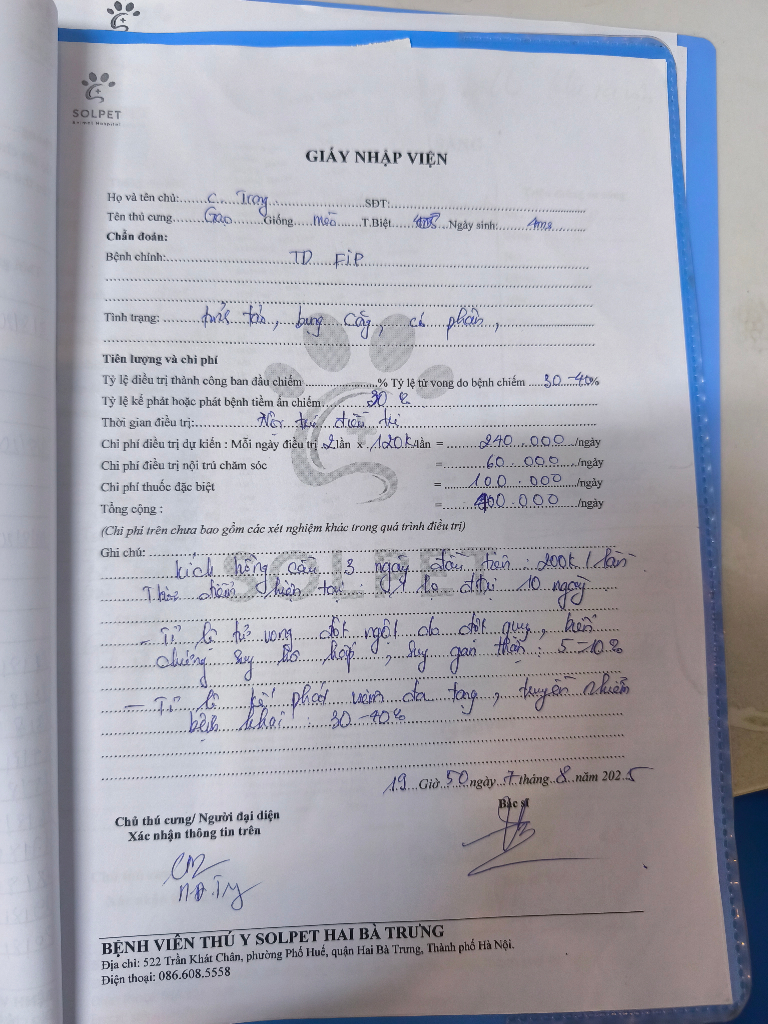 SOLPET
Animal Hospital
GIẤY NHẬP VIỆN
Họ và tên chủ: C. Trang SĐT:
Tên thú cưng Gạo Giống mèo T.Biệt Ngày sinh:
Chẩn đoán:
Bệnh chính: TD FIP
Tình trạng: tỉnh táo, bụng căng, có phân,
Tiên lượng và chi phí
Tỷ lệ điều trị thành công ban đầu chiếm % Tỷ lệ tử vong do bệnh chiếm 30-40%
Tỷ lệ kế phát hoặc phát bệnh tiềm ẩn chiếm 30 %
Thời gian điều trị: Nội trú điều trị
Chi phí điều trị dự kiến : Mỗi ngày điều trị 2 lần x 120k/lần = 240.000 /ngày
Chi phí điều trị nội trú chăm sóc = 60.000 /ngày
Chi phí thuốc đặc biệt = 100.000 /ngày
Tổng cộng : = 400.000 /ngày
(Chi phí trên chưa bao gồm các xét nghiệm khác trong quá trình điều trị)
Ghi chú: kích hồng cầu 3 ngày đầu tiên : 200k / lần
hiện tại 10 ngày
- Tỉ lệ tử vong đột ngột do đột quỵ, biến
chứng suy hô hấp, suy gan thận : 5-10%
- Tỉ lệ kế phát viêm đa tạng, truyền nhiễm
bệnh khác : 30-40%
19 Giờ 50 ngày 7 tháng 8 năm 2025
Chủ thú cưng/ Người đại diện
Xác nhận thông tin trên
Bác sĩ
BỆNH VIÊN THÚ Y SOLPET HAI BÀ TRƯNG
Địa chỉ: 522 Trần Khát Chân, phường Phố Huế, quận Hai Bà Trưng, Thành phố Hà Nội.
Điện thoại: 086.608.5558